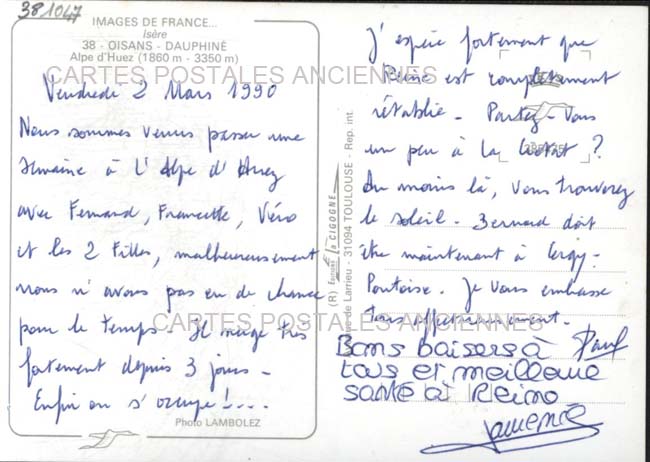 381047
IMAGES DE FRANCE...
Isère
38 - OISANS - DAUPHINÉ
Alpe d'Huez (1860 m - 3350 m)
CARTES POSTALES ANCIENNES
Vendredi 2 Mars 1990
Nous sommes venus passer une
semaine à l'Alpe d'Huez
avec Fernand, Francette, Véro
et les 2 filles, malheureusement
nous n'avons pas eu de chance
pour le temps. Il neige très
fortement depuis 3 jours -
Enfin on s'occupe !....
Photo LAMBOLEZ
CARTES POSTALES ANCIENNES
(R) Éditions la CIGOGNE
rue de Larrieu - 31094 TOULOUSE - Rep. int.
J'espère fortement que
Reine est complètement
rétablie - Partez-vous
un peu à la Ciotat ?
Au moins là, vous trouverez
le soleil - Bernard doit
être maintenant à Cergy-
Pontoise. Je vous embrasse
tous affectueusement.
Paul
Bons baisers à
tous et meilleure
santé à Reine